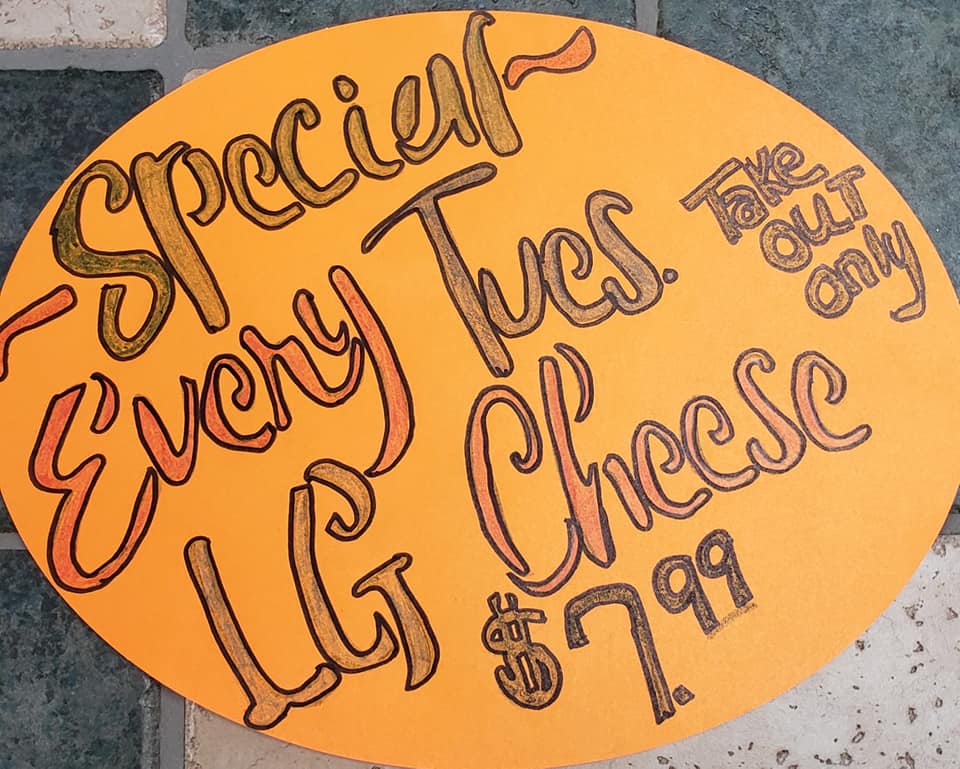 Special
Every Tues.
LG Cheese
$7.99
Take
out
only